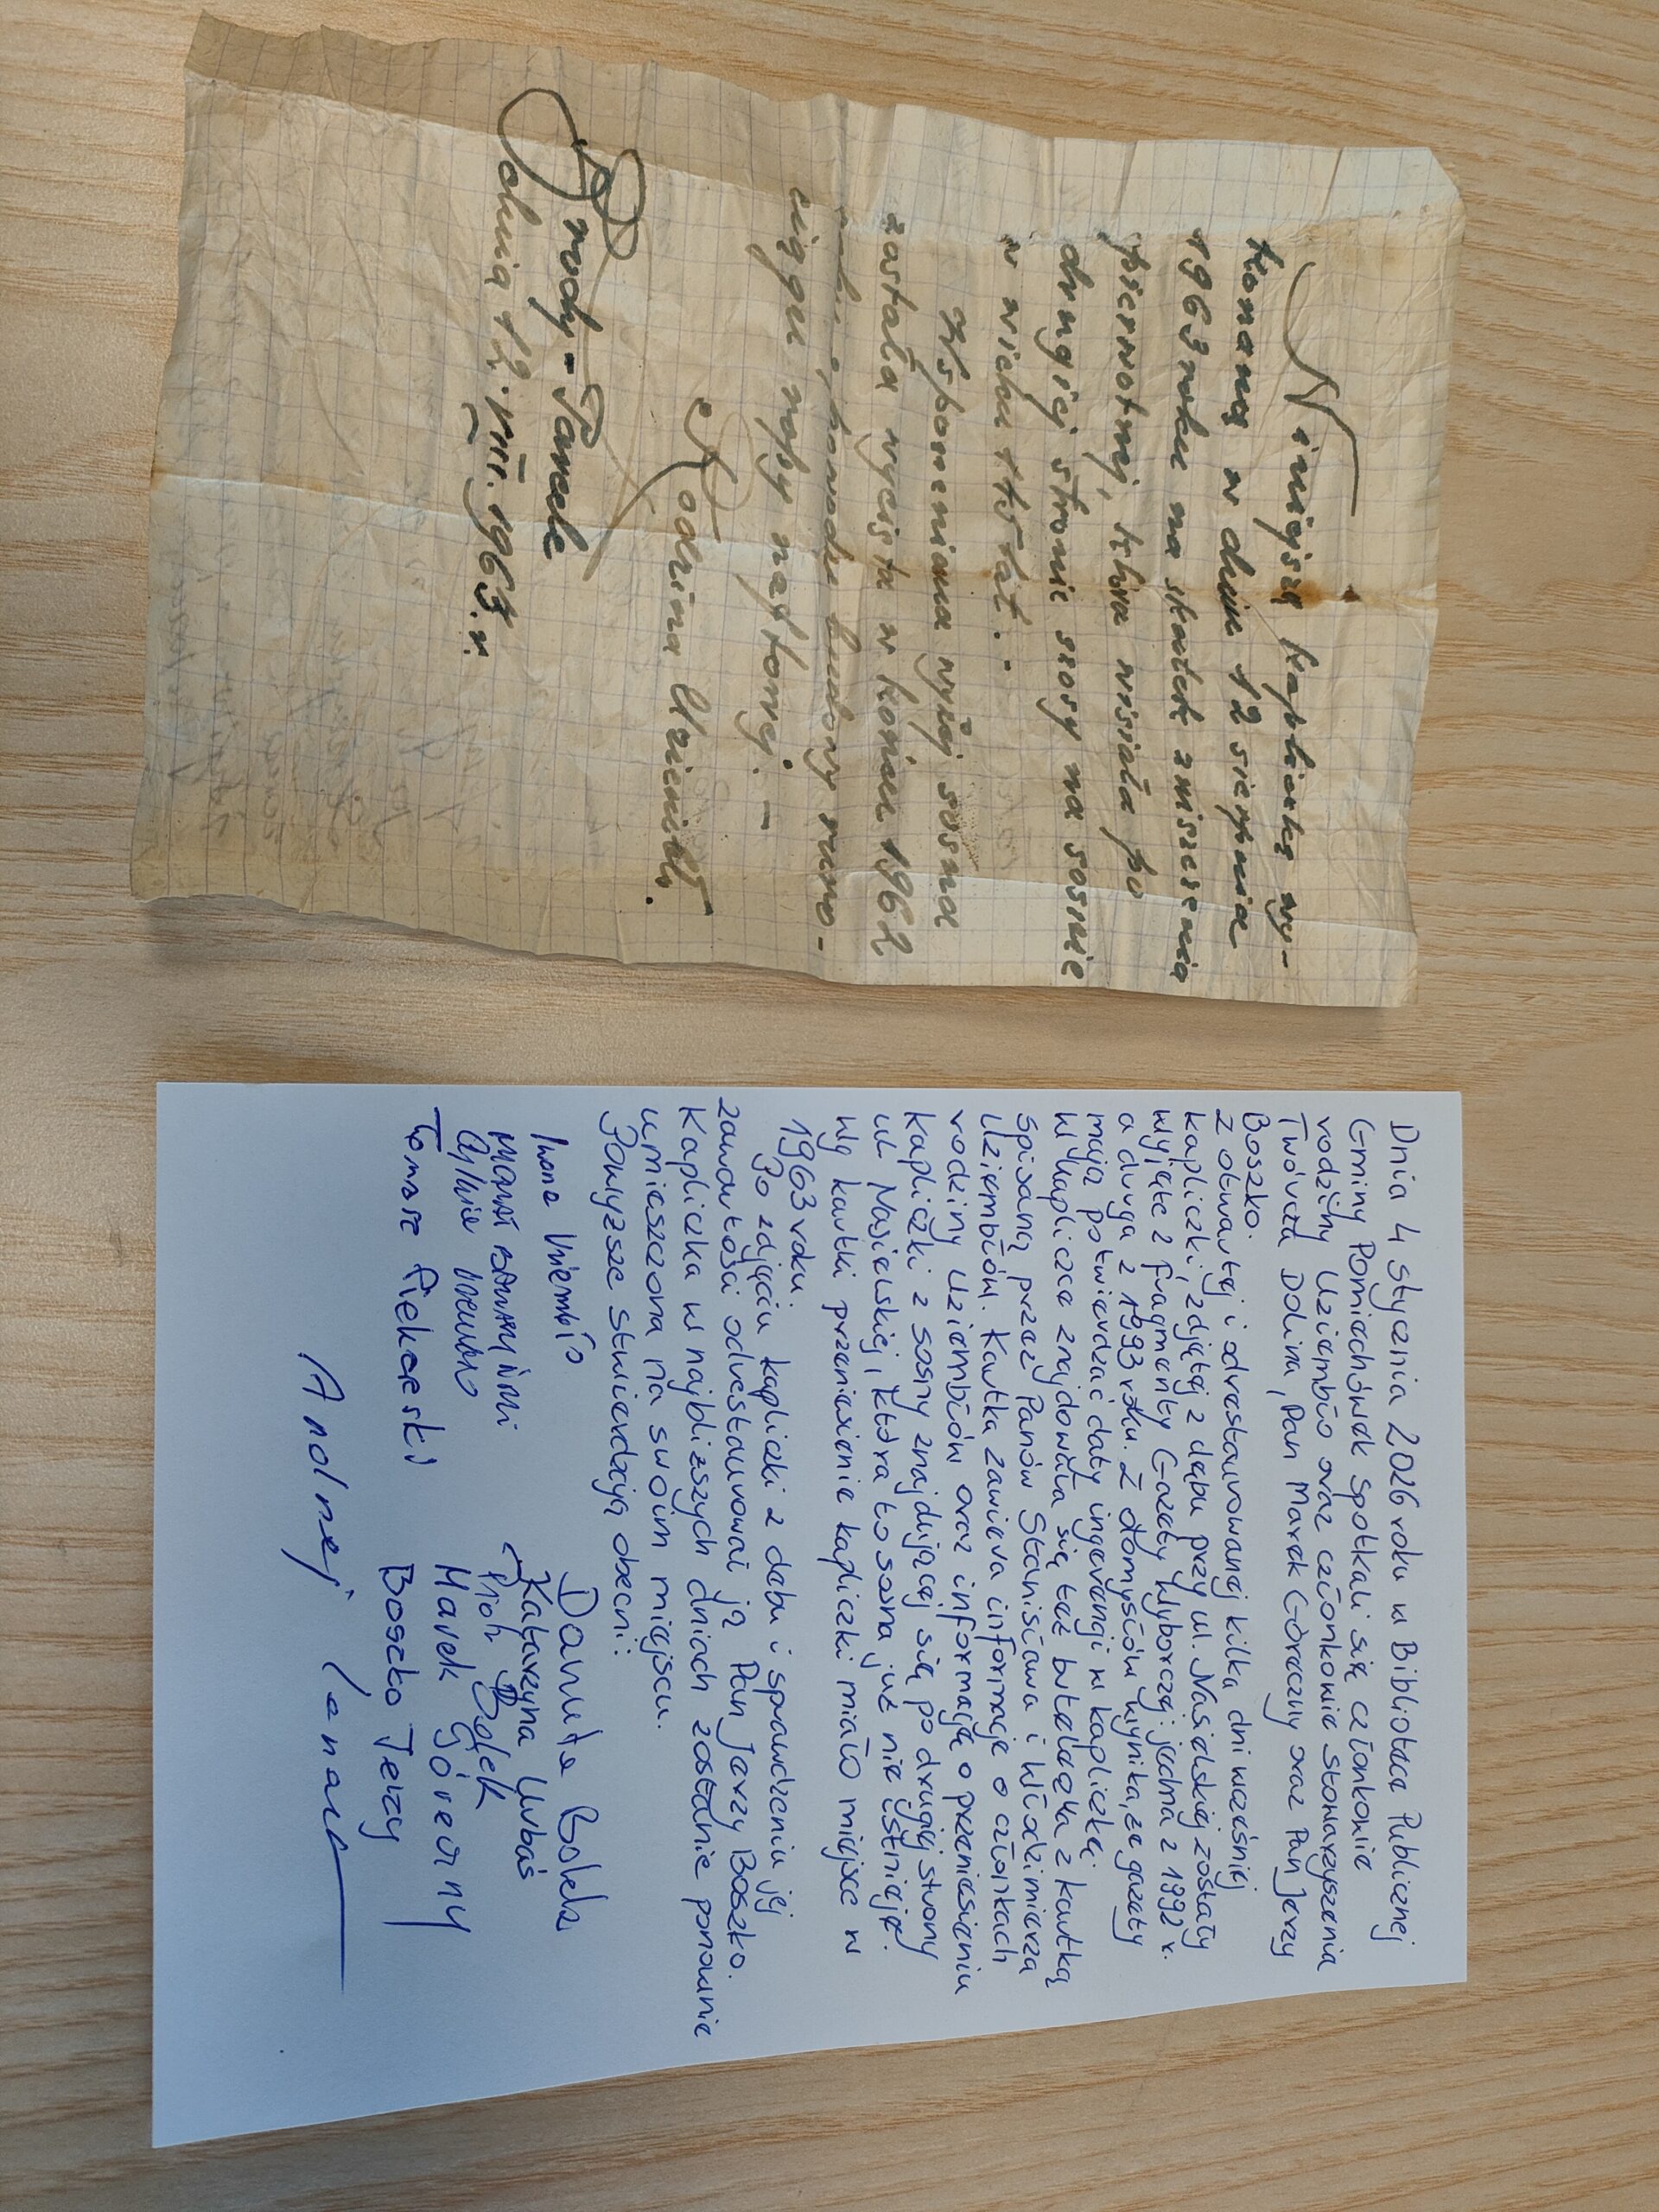 Niniejszą kapliczkę wy-
konaną w dniu 12 sierpnia
1963 roku na skutek zniszczenia
pierwotnej, która wisiała po
drugiej stronie szosy na sosnie
w wieku 115 lat.-
Wspomniana wyżej sosna
została wycięta w końcu 1962
roku, z powodu budowy ruro-
ciągu ropy naftowej.-
Rodzina Uziembło.
Brody-Parcele
dnia 12.VIII.1963.r.
Dnia 4 stycznia 2026 roku w Bibliotece Publicznej
Gminy Pomiechówek spotkali się członkowie
rodziny Uziembło oraz członkowie stowarzyszenia
Twórcza Dolina, Pan Marek Góreczny oraz Pan Jerzy
Boszko.
Z otwartej i odrestaurowanej kilka dni wcześniej
kapliczki, zdjętej z dębu przy ul. Nasielskiej zostały
wyjęte 2 fragmenty Gazety Wyborczej: jedna z 1992 r.
a druga z 1993 roku. Z domysłów wynika, że gazety
mają potwierdzać daty ingerencji w kapliczkę.
W kapliczce znajdowała się też buteleczka z kartką
spisaną przez Panów Stanisława i Włodzimierza
Uziembłów. Kartka zawiera informacje o członkach
rodziny Uziembłów oraz informację o przeniesieniu
kapliczki z sosny znajdującej się po drugiej strony
ul. Nasielskiej, która to sosna już nie istnieje.
Wg kartki przeniesienie kapliczki miało miejsce w
1963 roku.
Po zdjęciu kapliczki z dębu i sprawdzeniu jej
zawartości odrestaurował ją Pan Jerzy Boszko.
Kapliczka w najbliższych dniach zostanie ponownie
umieszczona na swoim miejscu.
Powyższe stwierdzają obecni:
Iwona Uziembło
Danuta Bolek
Katarzyna Urbaś
Piotr Bolek
Marek Góreczny
Tomasz Piekarski
Boszko Jerzy
Andrzej